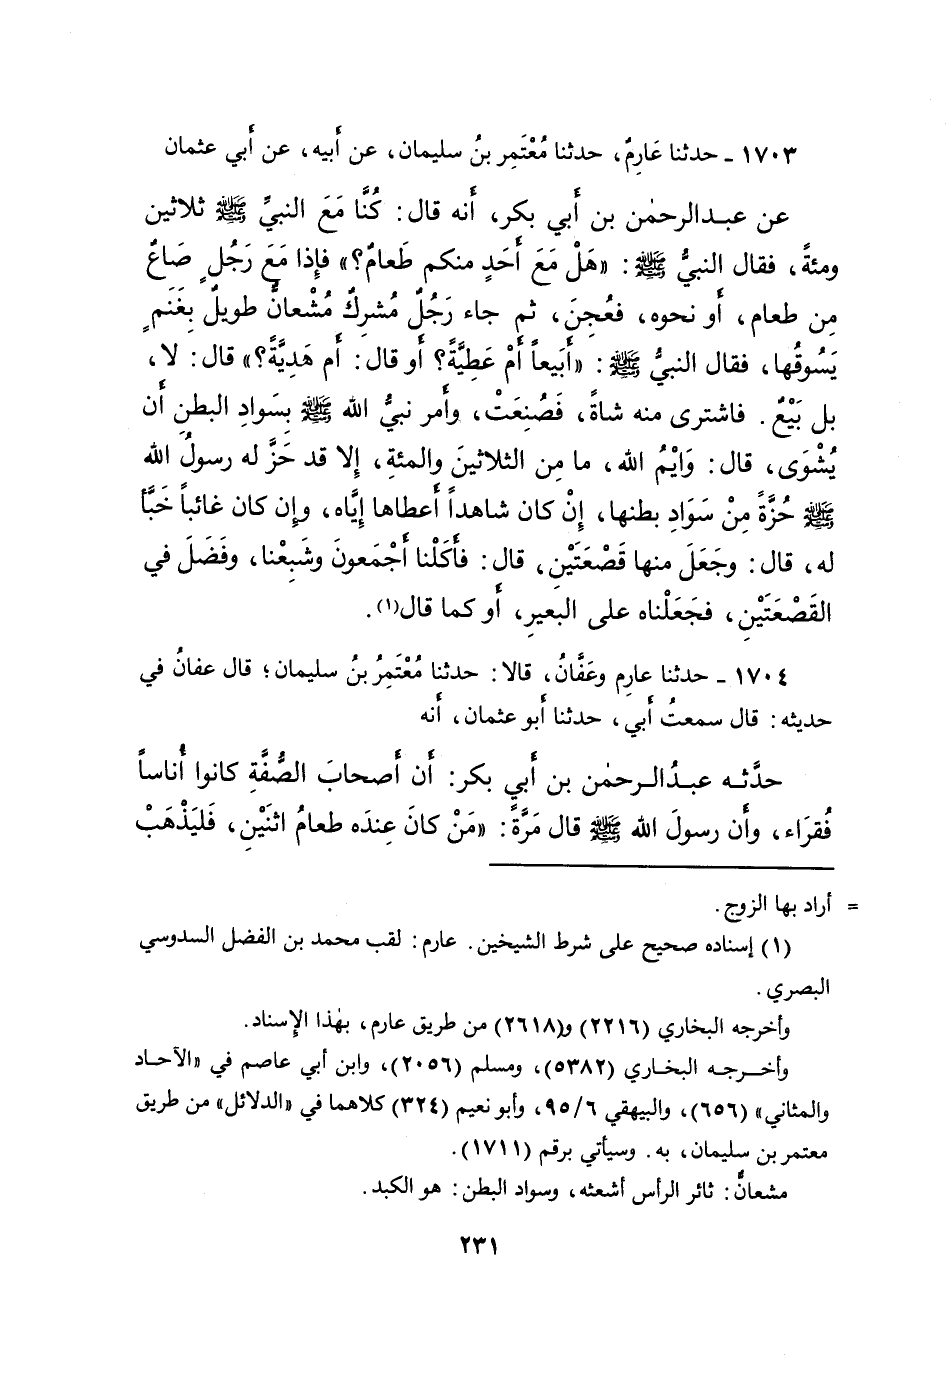 ١٧٠٣ ـ حدثنا عَارِمٌ، حدثنا مُعْتَمِر بنُ سليمان، عن أَبيه، عن أَبي عثمان
عن عبـدالرحمٰن بن أَبي بكر، أَنه قال: كُنَّا مَعَ النبيِّ ﷺ ثلاثين
ومئةً، فقال النبيُّ ﷺ: «هَلْ مَعَ أَحَدٍ منكم طَعامٌ؟» فإذا مَعَ رَجُلٍ صَاعٌ
مِن طعام، أَو نحوه، فعُجِنَ، ثم جاء رَجُلٌ مُشرِكٌ مُشْعانٌّ طويلٌ بِغَنَمٍ
يَسُوقُها، فقال النبيُّ ﷺ: «أَبَيعاً أَمْ عَطِيَّةً؟ أَو قال: أَم هَدِيَّةً؟» قال: لا،
بل بَيْعٌ. فاشترى منه شاةً، فَصُنِعَتْ، وأَمر نبيُّ الله ﷺ بِسَوادِ البطنِ أَن
يُشْوَى، قال: وَايْمُ الله، ما مِن الثلاثينَ والمئةِ، إِلا قد حَزَّ له رسولُ الله
ﷺ حُزَّةً مِنْ سَوَادِ بطنها، إِنْ كان شاهداً أَعطاها إِيَّاه، وإِن كان غائباً خَبَّأَ
له، قال: وجَعَلَ منها قَصْعَتَيْنِ، قال: فأَكَلْنا أَجْمَعونَ وشَبِعْنا، وفَضَلَ في
القَصْعَتَيْنِ، فجَعَلْناه على البعيرِ، أَو كما قال(١).
١٧٠٤ ـ حدثنا عارِم وعَفَّانُ، قالا: حدثنا مُعْتَمِرُ بنُ سليمان؛ قال عفانُ في
حديثه: قال سمعتُ أَبي، حدثنا أَبو عثمان، أَنه
حدَّثـه عبـدُالـرحمٰن بن أَبي بكر: أَن أَصحابَ الصُّفَّةِ كانوا أُناساً
فُقرَاء، وأَن رسولَ الله ﷺ قال مَرَّةً: «مَنْ كانَ عِندَه طعامُ اثنَيْنِ، فَليَذْهَبْ
= أراد بها الزوج.
(١) إسناده صحيح على شرط الشيخين. عارم: لقب محمد بن الفضل السدوسي
البصري.
وأخرجه البخاري (٢٢١٦) و(٢٦١٨) من طريق عارم، بهٰذا الإسناد.
وأخـرجـه البخـاري (٥٣٨٢)، ومسلم (٢٠٥٦)، وابن أبي عاصم في «الآحـاد
والمثاني» (٦٥٦)، والبيهقي ٩٥/٦، وأبو نعيم (٣٢٤) كلاهما في «الدلائل» من طريق
معتمر بن سليمان، به. وسيأتي برقم (١٧١١).
مشعانٌّ: ثائر الرأس أشعثه، وسواد البطن: هو الكبد.
٢٣١